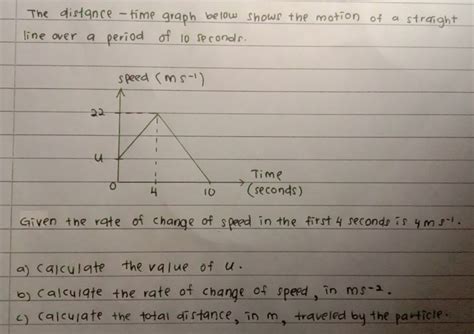 The distance - time graph below shows the motion of a straight
line over a period of 10 seconds.
speed (ms⁻¹)
22
u
Time
0 4 10 (seconds)
Given the rate of change of speed in the first 4 seconds is 4 ms⁻¹.
a) Calculate the value of u.
b) Calculate the rate of change of speed, in ms⁻².
c) Calculate the total distance, in m, traveled by the particle.